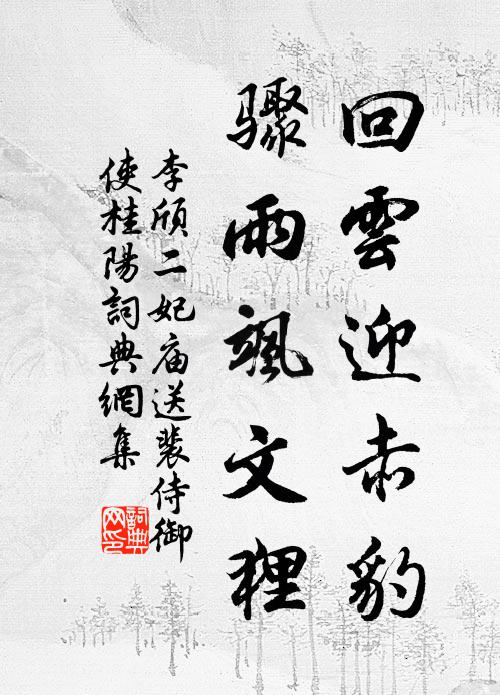 回雲迎赤豹
驟雨颯文狸
李頎二妃庙送裴侍御
使桂陽詞典網集
詞典
网印